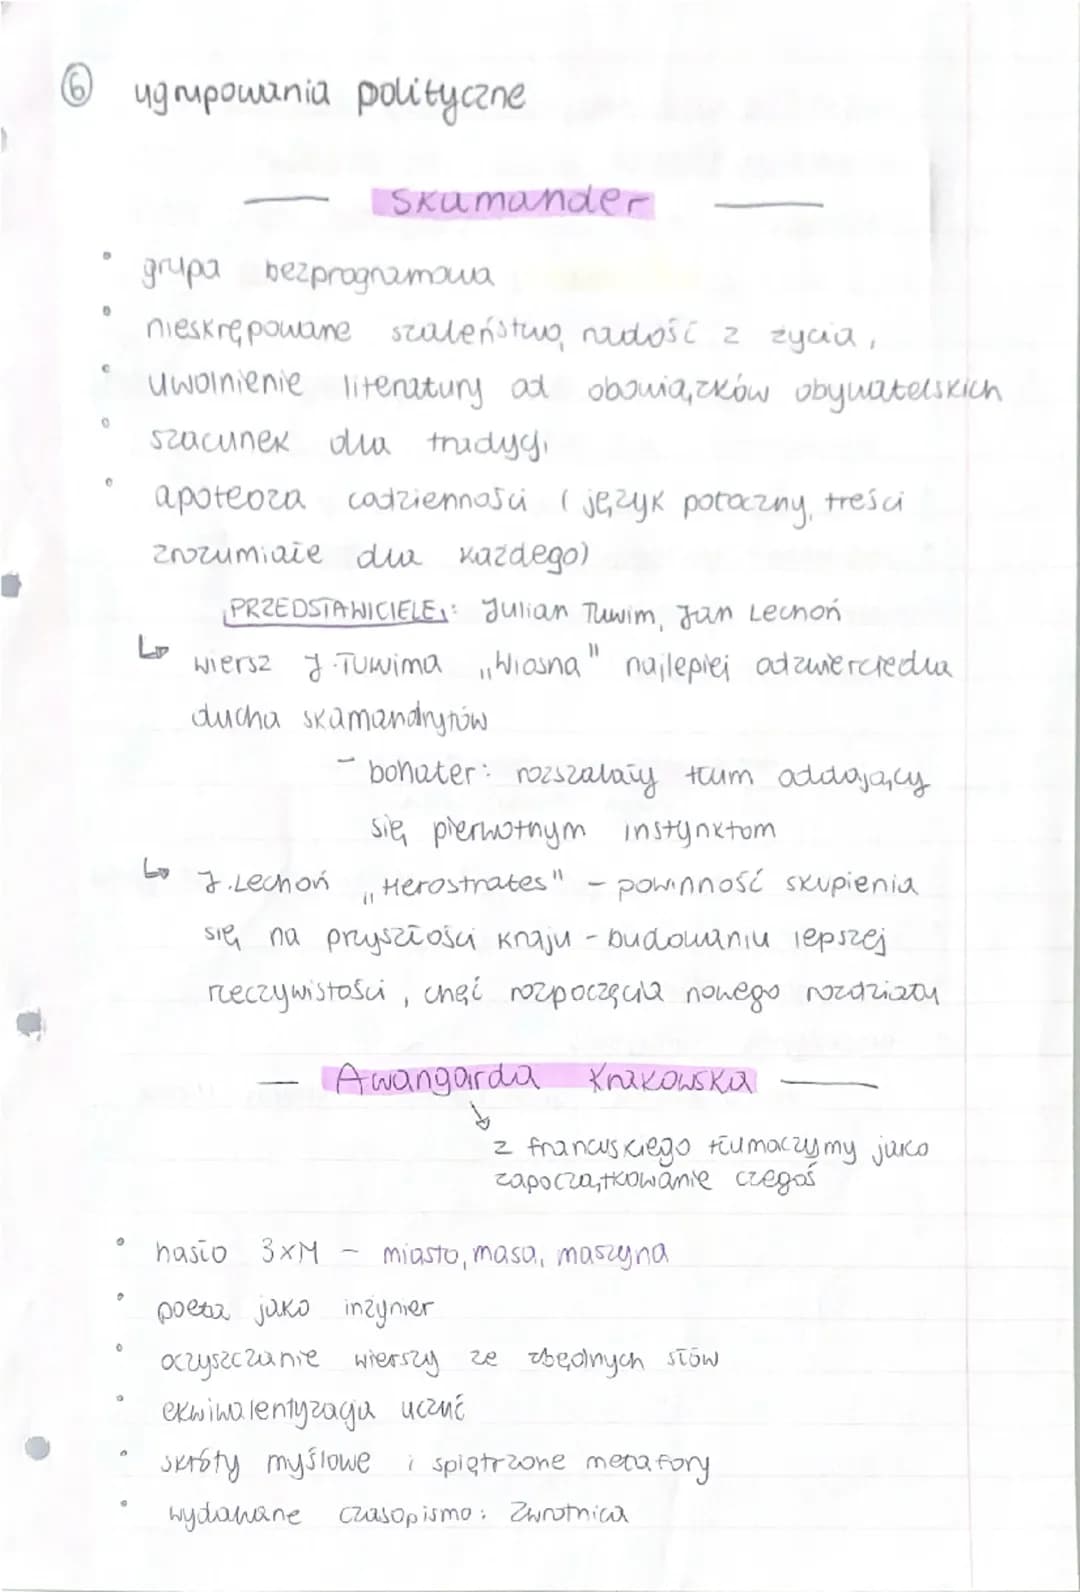 ⑥ ugrupowania polityczne
— Skamander —
• grupa bezprogramowa
• nieskrępowane szaleństwo, radość z życia,
• uwolnienie literatury od obowiązków obywatelskich
• szacunek dla tradycji
• apoteoza codzienności (język potoczny, treści
zrozumiałe dla każdego)
PRZEDSTAWICIELE: Julian Tuwim, Jan Lechoń
↳ wiersz J. Tuwima „Wiosna" najlepiej odzwierciedla
ducha skamandrytów
- bohater: rozszalały tłum oddający
się pierwotnym instynktom
↳ J. Lechoń „Herostrates" - powinność skupienia
się na przyszłości kraju - budowaniu lepszej
rzeczywistości, chęć rozpoczęcia nowego rozdziału
— Awangarda Krakowska —
↘ z francuskiego tłumaczymy jako
zapoczątkowanie czegoś
• hasło 3xM - miasto, masa, maszyna
• poeta jako inżynier
• oczyszczanie wierszy ze zbędnych słów
• ekwiwalentyzacja uczuć
• skróty myślowe i spiętrzone metafory
• wydawane czasopismo: Zwrotnica